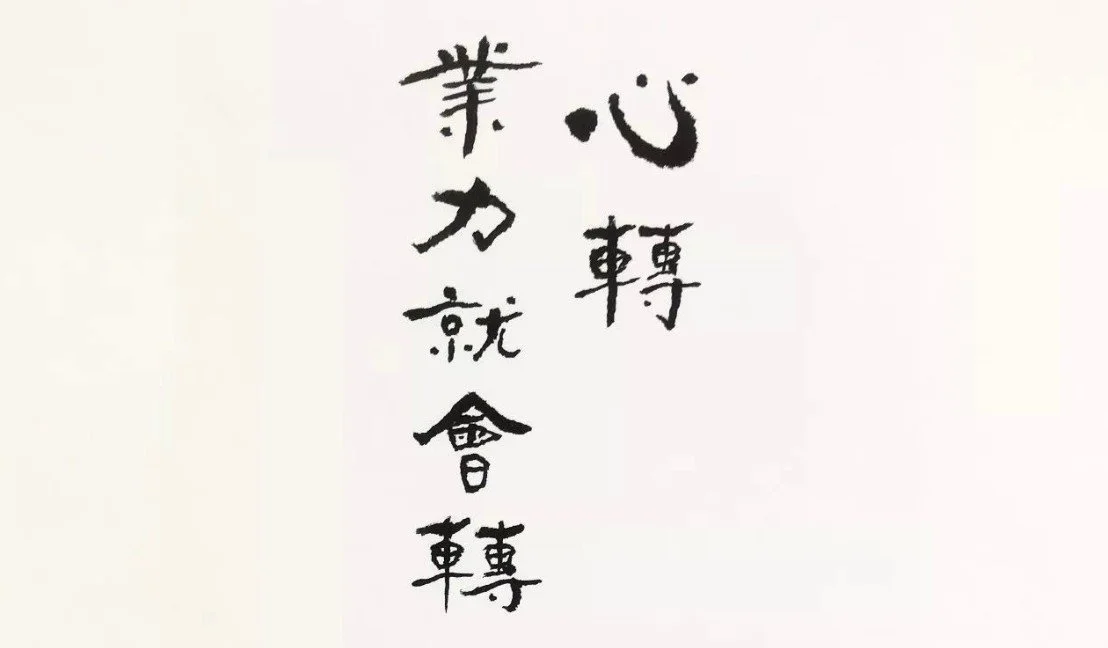 心轉
業力就會轉